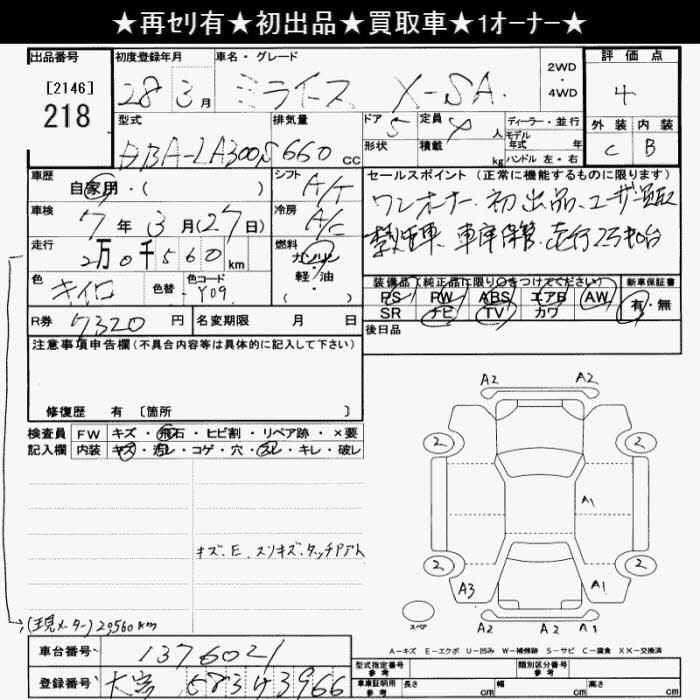 ★再セリ有★初出品★買取車★1オーナー★
出品番号
[2146]
218
初度登録年月
28年 3月
車名・グレード
ミライース X-SA
2WD
・
4WD
評価点
4
外装 内装
C B
型式
DBA-LA300S
排気量
660 cc
ドア 5
定員 4 人
形状
積載 kg
ディーラー・並行
モデル年式 年
ハンドル 左・右
車歴
自家用・( )
シフト
A/T
車検
7年3月(27日)
冷房
A/C
走行
2万0千560 km
燃料
ガソリン
軽・油
( )
色
キイロ
色替
色コード
Y09
セールスポイント (正常に機能するものに限ります)
ワンオーナー、初出品、ユーザー買取
禁煙車、車庫保管、走行2万キロ台
装備品(純正品に限り○をつけてください)
PS PW ABS エアB AW
SR ナビ TV カワ
新車保証書
有・無
後日品
R券 7320 円
名変期限 月 日
注意事項申告欄(不具合内容等は具体的に記入して下さい)
修復歴 有 [箇所 ]
検査員
記入欄
FW キズ・飛石・ヒビ割・リペア跡・×要
内装 キズ・汚レ・コゲ・穴・スレ・キレ・破レ
キズ、E、スリキズ、タッチアトA
A2 A2
2 2
A1
2 2
A3 A1
A2 A2
スペア
(現メーター) 20560km
A-キズ E-エクボ U-凹み W-補修跡 S-サビ C-腐食 XX-交換済
車台番号 1376021
登録番号 大宮 583 す 3966
型式指定番号
参考
類別区分番号
車庫証明用
参考
長さ cm
幅 cm
高さ cm